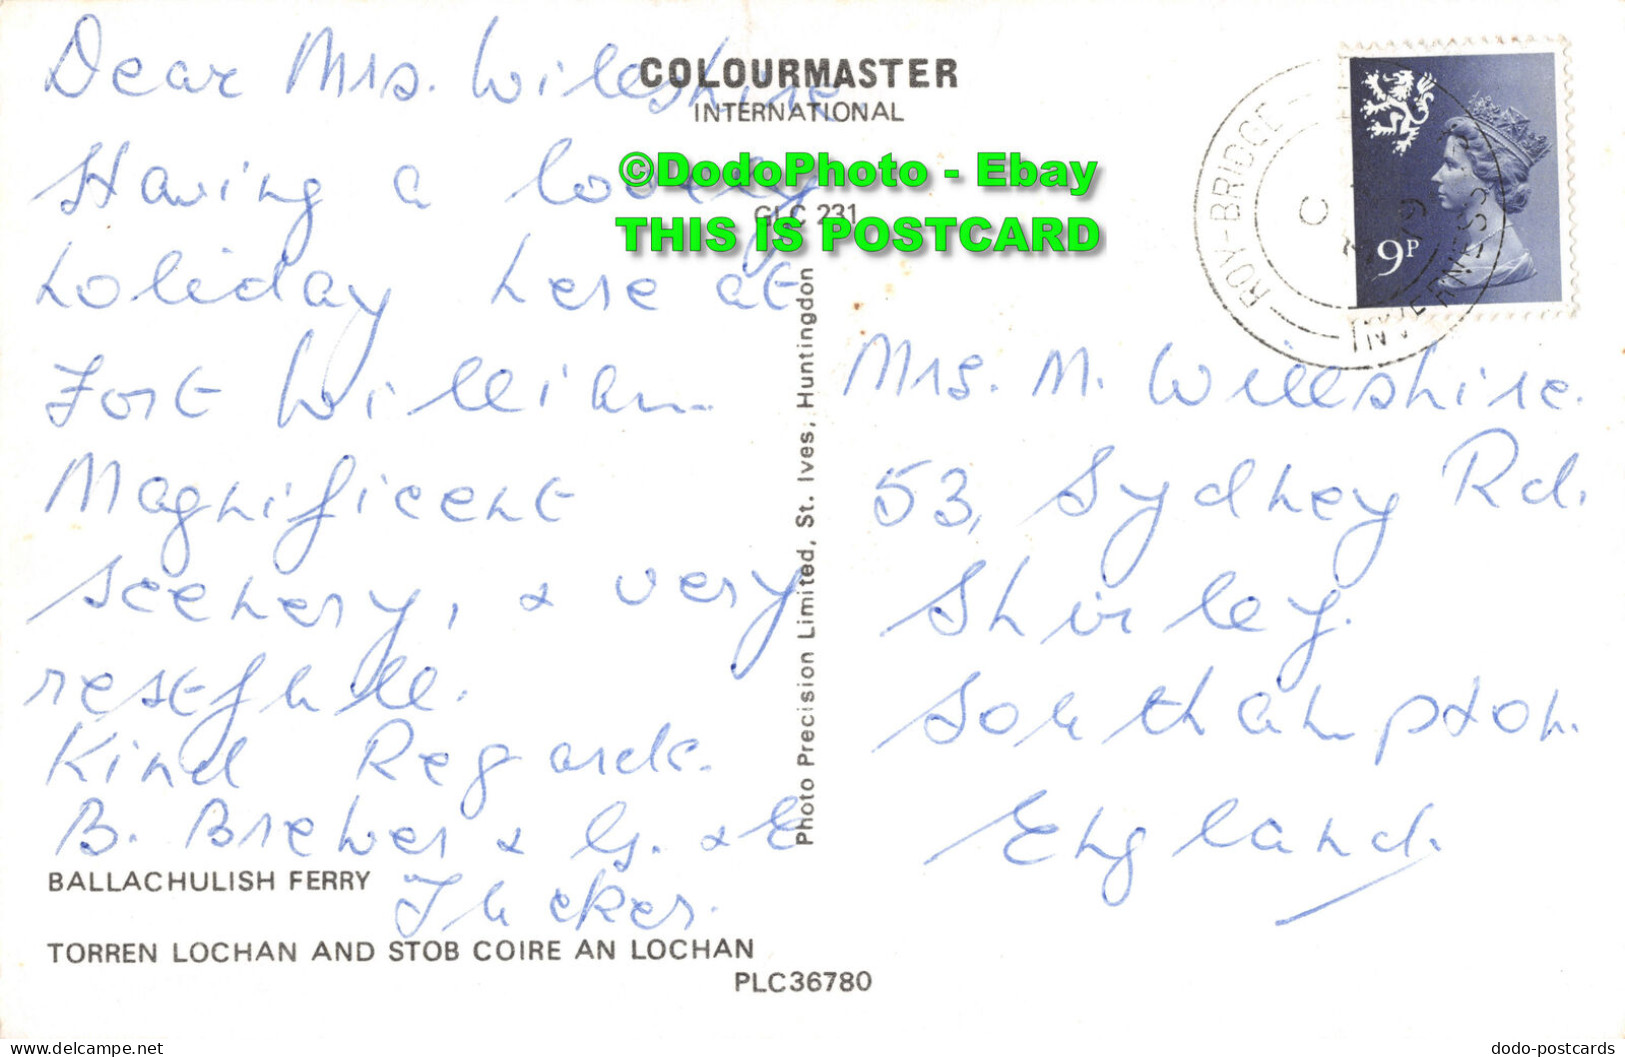 Dear Mrs. Willshire.
Having a lovely
holiday here at
Fort William
Magnificent
scenery, & very
restfull.
Kind Regards.
B. Brewer & G. & E
Tucker.
BALLACHULISH FERRY
TORREN LOCHAN AND STOB COIRE AN LOCHAN
PLC36780
COLOURMASTER
INTERNATIONAL
©DodoPhoto - Ebay
GLC 231
THIS IS POSTCARD
Photo Precision Limited, St. Ives, Huntingdon
ROY-BRIDGE
INVERNESS
C
9P
Mrs. M. Willshire.
53, Sydney Rd.
Shirley.
Southampton.
England.
dodo-postcards.com
dodo-postcards